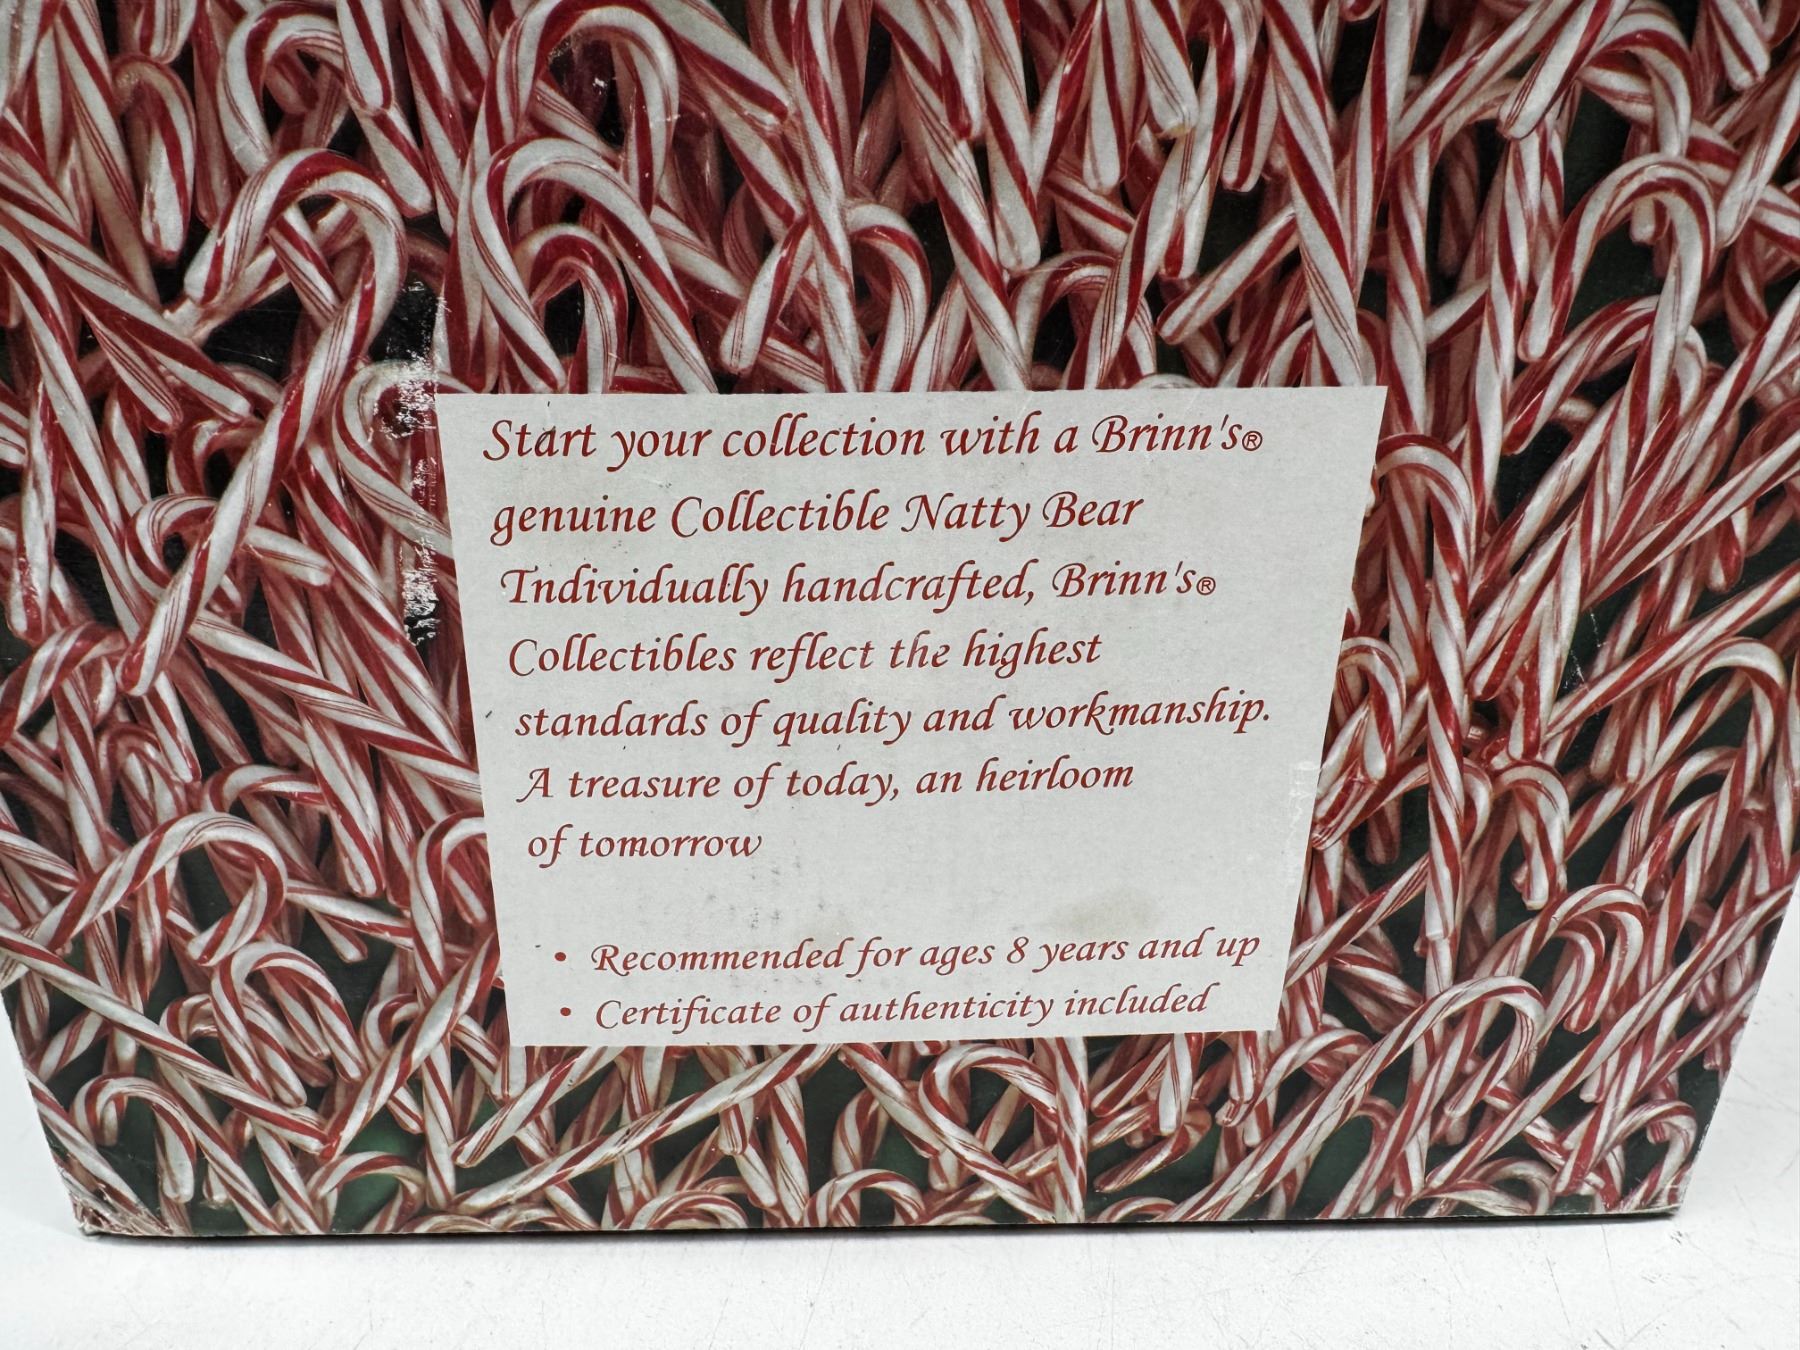 Start your collection with a Brinn's®
genuine Collectible Natty Bear
Individually handcrafted, Brinn's®
Collectibles reflect the highest
standards of quality and workmanship.
A treasure of today, an heirloom
of tomorrow
• Recommended for ages 8 years and up
• Certificate of authenticity included